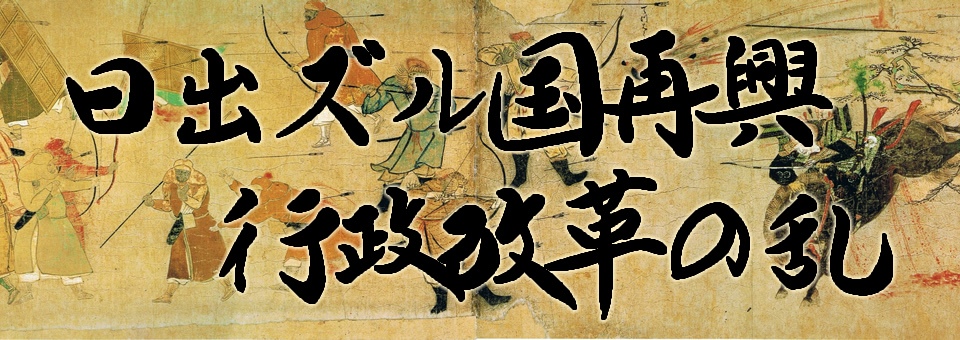 日出ズル国再興
行政改革の乱